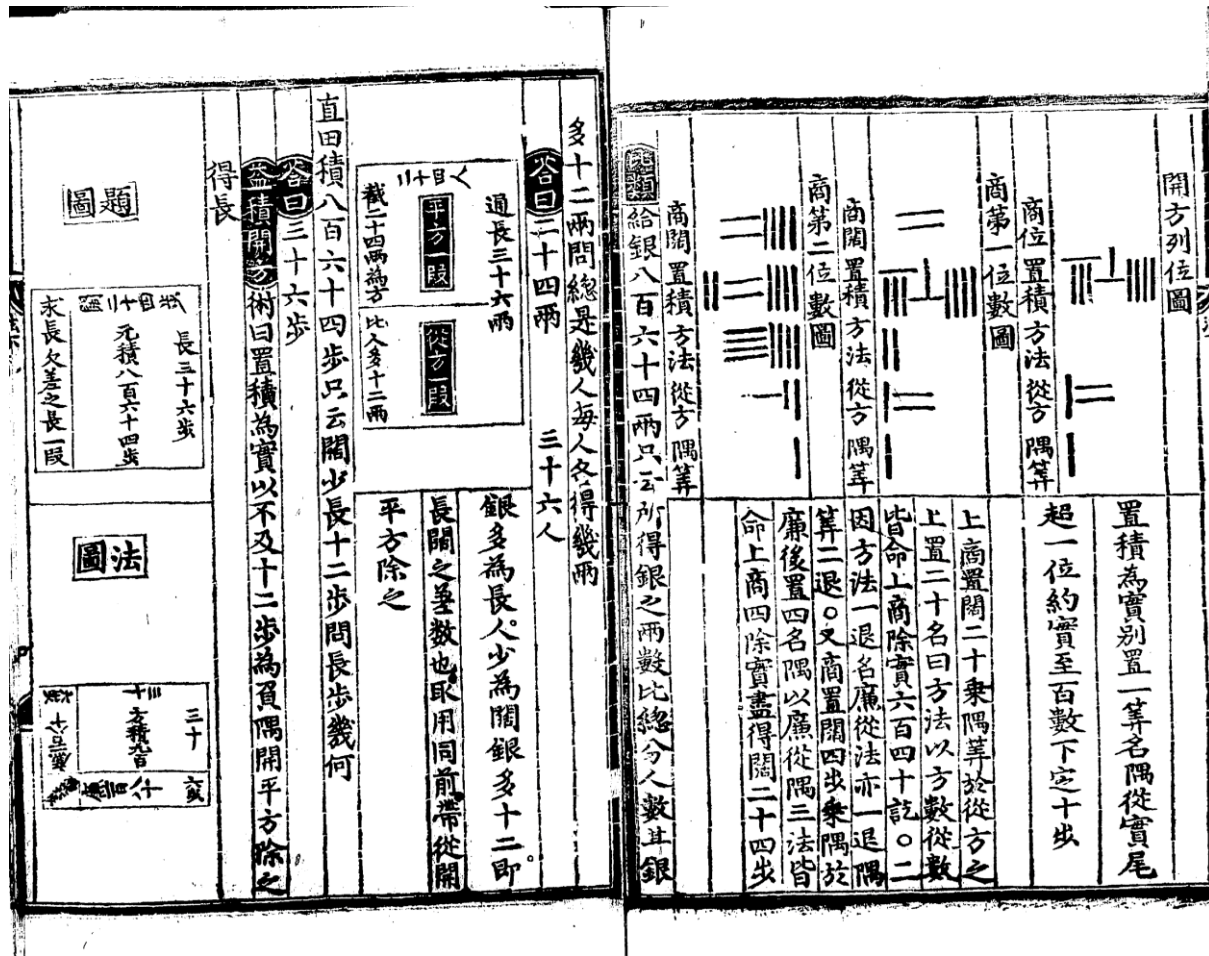 開方列位圖
商位置積方法從方隅筭
置積為實别置一筭名隅從實尾
超一位約實至百數下定十步
商第一位數圖
商闊置積方法從方隅筭
上商置闊二十乘隅筭於從方之
上置二十名曰方法以方數從數
皆命上商除實六百四十訖〇二
因方法一退名廉從法亦一退隅
筭二退〇又商置闊四步乘隅於
廉後置四名隅以廉從隅三法皆
命上商四除實盡得闊二十四步
商第二位數圖
商闊置積方法從方隅筭
比類
給銀八百六十四兩只云所得銀之兩數比總分人數其銀
多十二兩問總是幾人每人各得幾兩
答曰二十四兩 三十六人
通長三十六兩
人目十二
平方一段
從方一段
截二十四兩為方
比人多十二兩
銀多為長人少為闊銀多十二即
長闊之差數也取用同前帶從開
平方除之
直田積八百六十四步只云闊少長十二步問長步幾何
答曰三十六步
益積開方術曰置積為實以不及十二步為負隅開平方除之
得長
題圖
長三十六步
元積八百六十四步
求長欠差之長一段
法圖
三十
方積九百